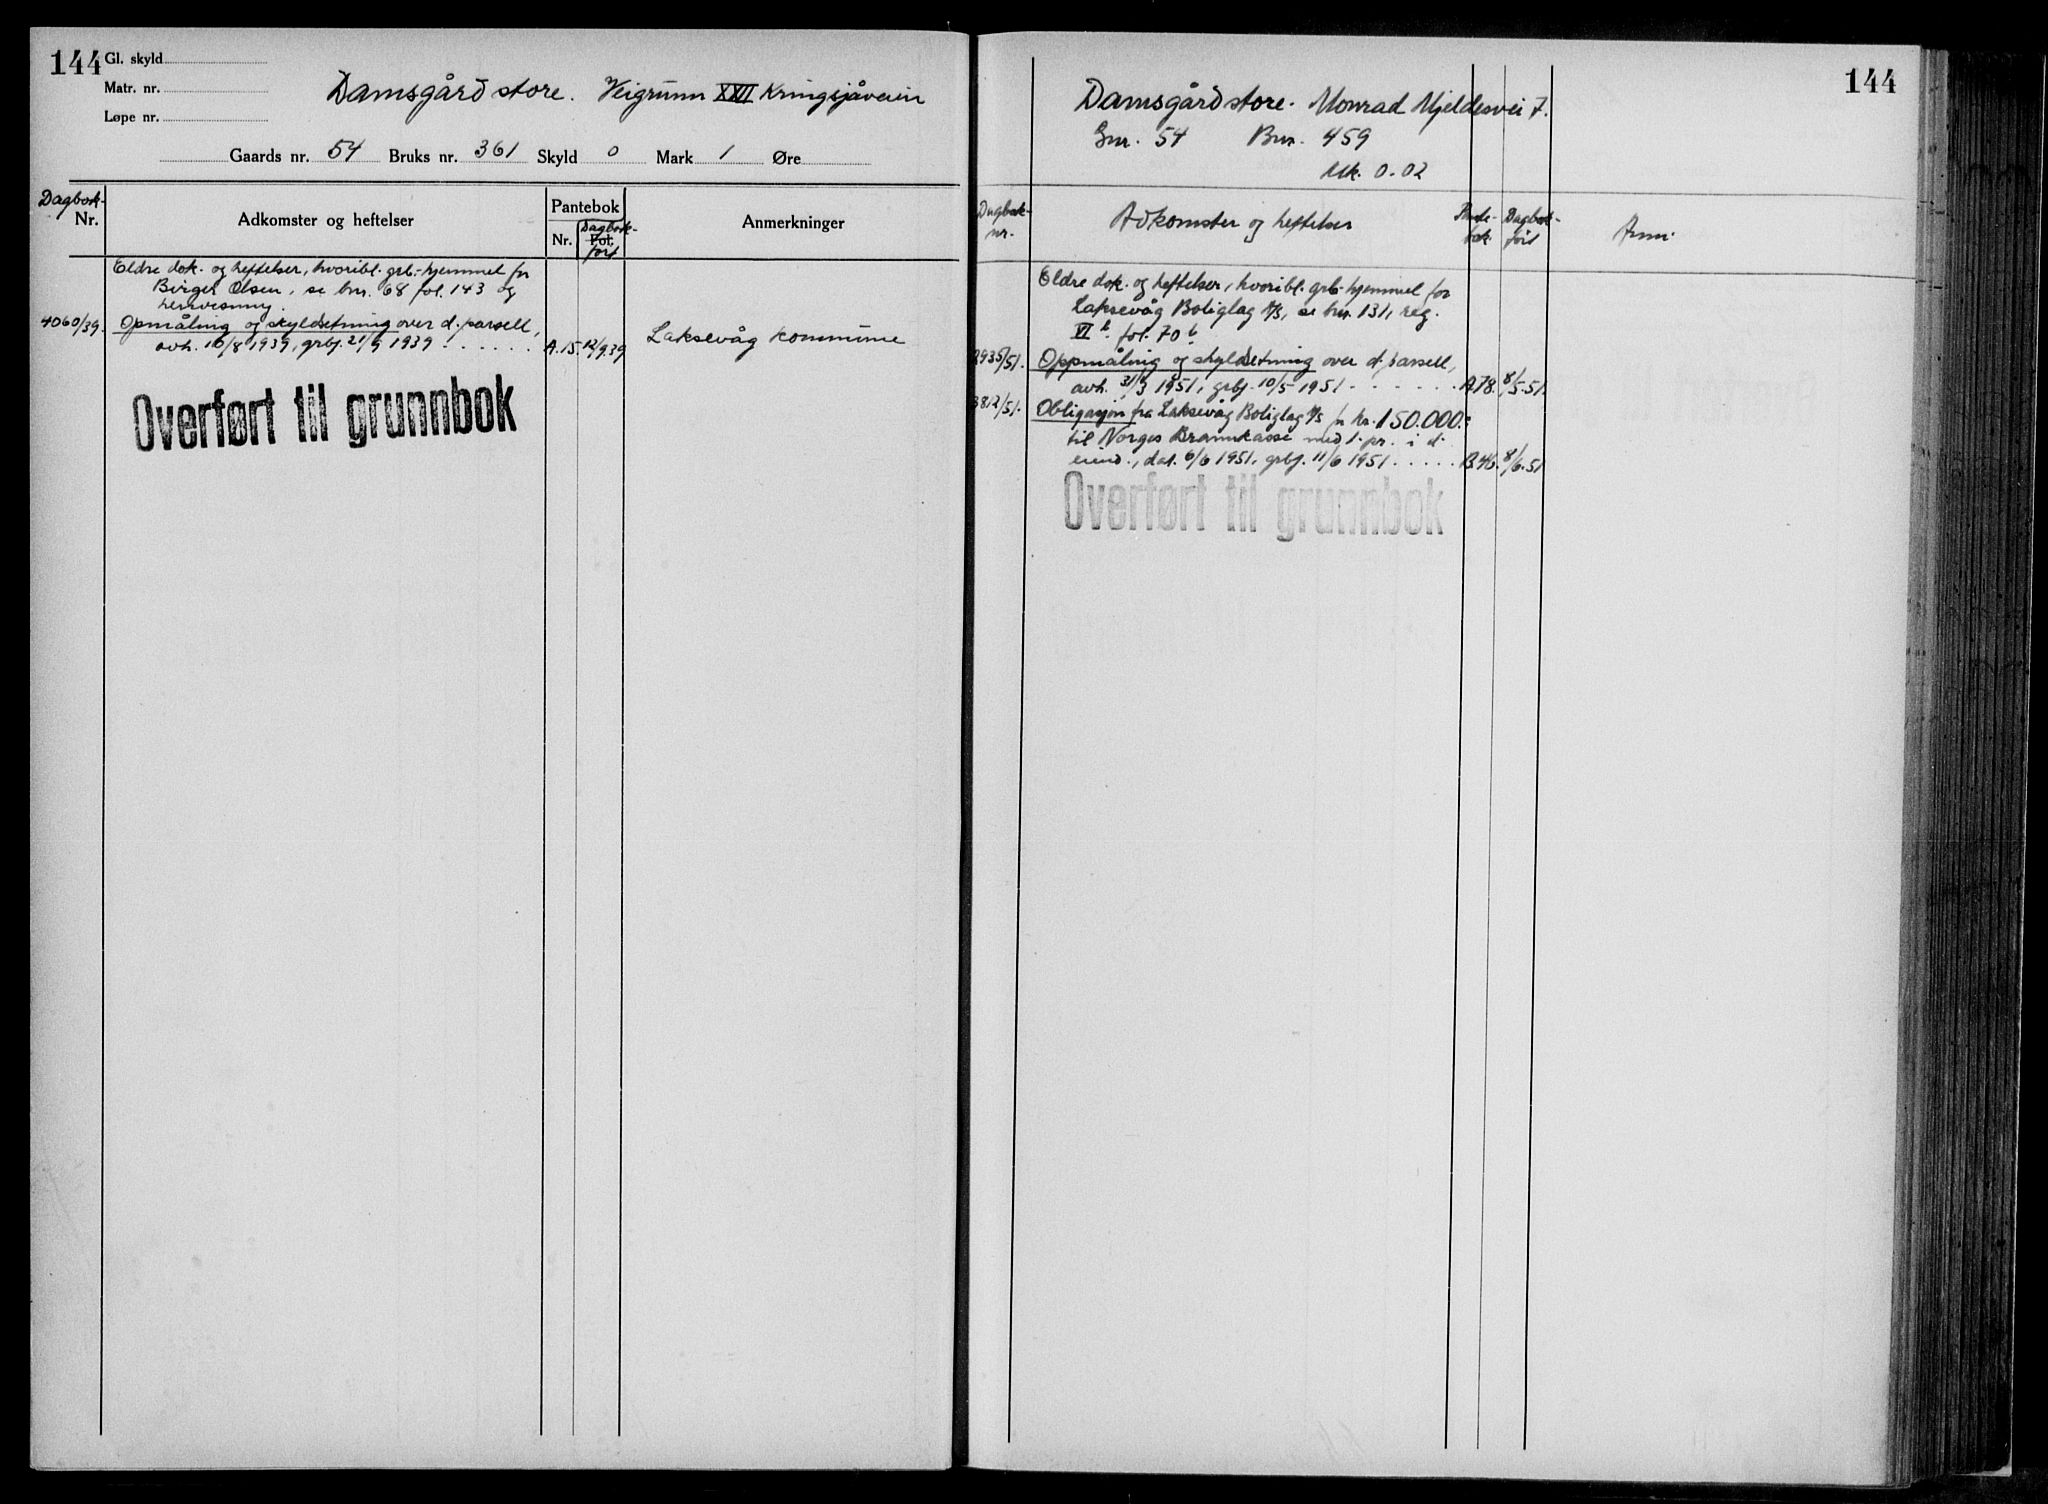 144
Gl. skyld
Matr. nr.
Løpe nr.
Damsgård store. Veigrunn XXII Kringsjåveien
Gaards nr. 54 Bruks nr. 361 Skyld 0 Mark 1 Øre
Dagbok-
Nr.
Adkomster og heftelser
Pantebok
Nr.
Dagbok-
Fol.
ført
Anmerkninger
Eldre dok. og heftelser, hvoribl. grb.-hjemmel for
Birger Olsen, se bnr. 68 fol. 143 og
henvisning.
4060/39. Opmåling og skyldsetning over d. parsell,
avh. 16/8 1939, grbf. 21/9 1939 . . . . . . A.15. 12/9.39
Laksevåg kommune
Overført til grunnbok
144
Damsgård store. Monrad Mjeldesvei 7.
Gnr. 54 Bnr. 459
Mk. 0.02
Dagbok-
nr.
Adkomster og heftelser
Pante-
bok.
Dagbok-
ført
Anm.
Eldre dok. og heftelser, hvoribl. grb-hjemmel for
Laksevåg Boliglag A/S, se bnr. 131, reg.
VI b. fol. 70 b
2935/51. Oppmåling og skyldsetning over d. parsell,
avh. 31/3 1951, grbf. 10/5 1951 . . . . . . . A.78. 8/5.51.
3812/51. Obligasjon fra Laksevåg Boliglag A/S for kr. 150.000.-
til Norges Brannkasse med 1. pr. i d.
eiend., dat. 6/6 1951, grbf. 11/6 1951 . . . . . B.46. 8/6.51
Overført til grunnbok